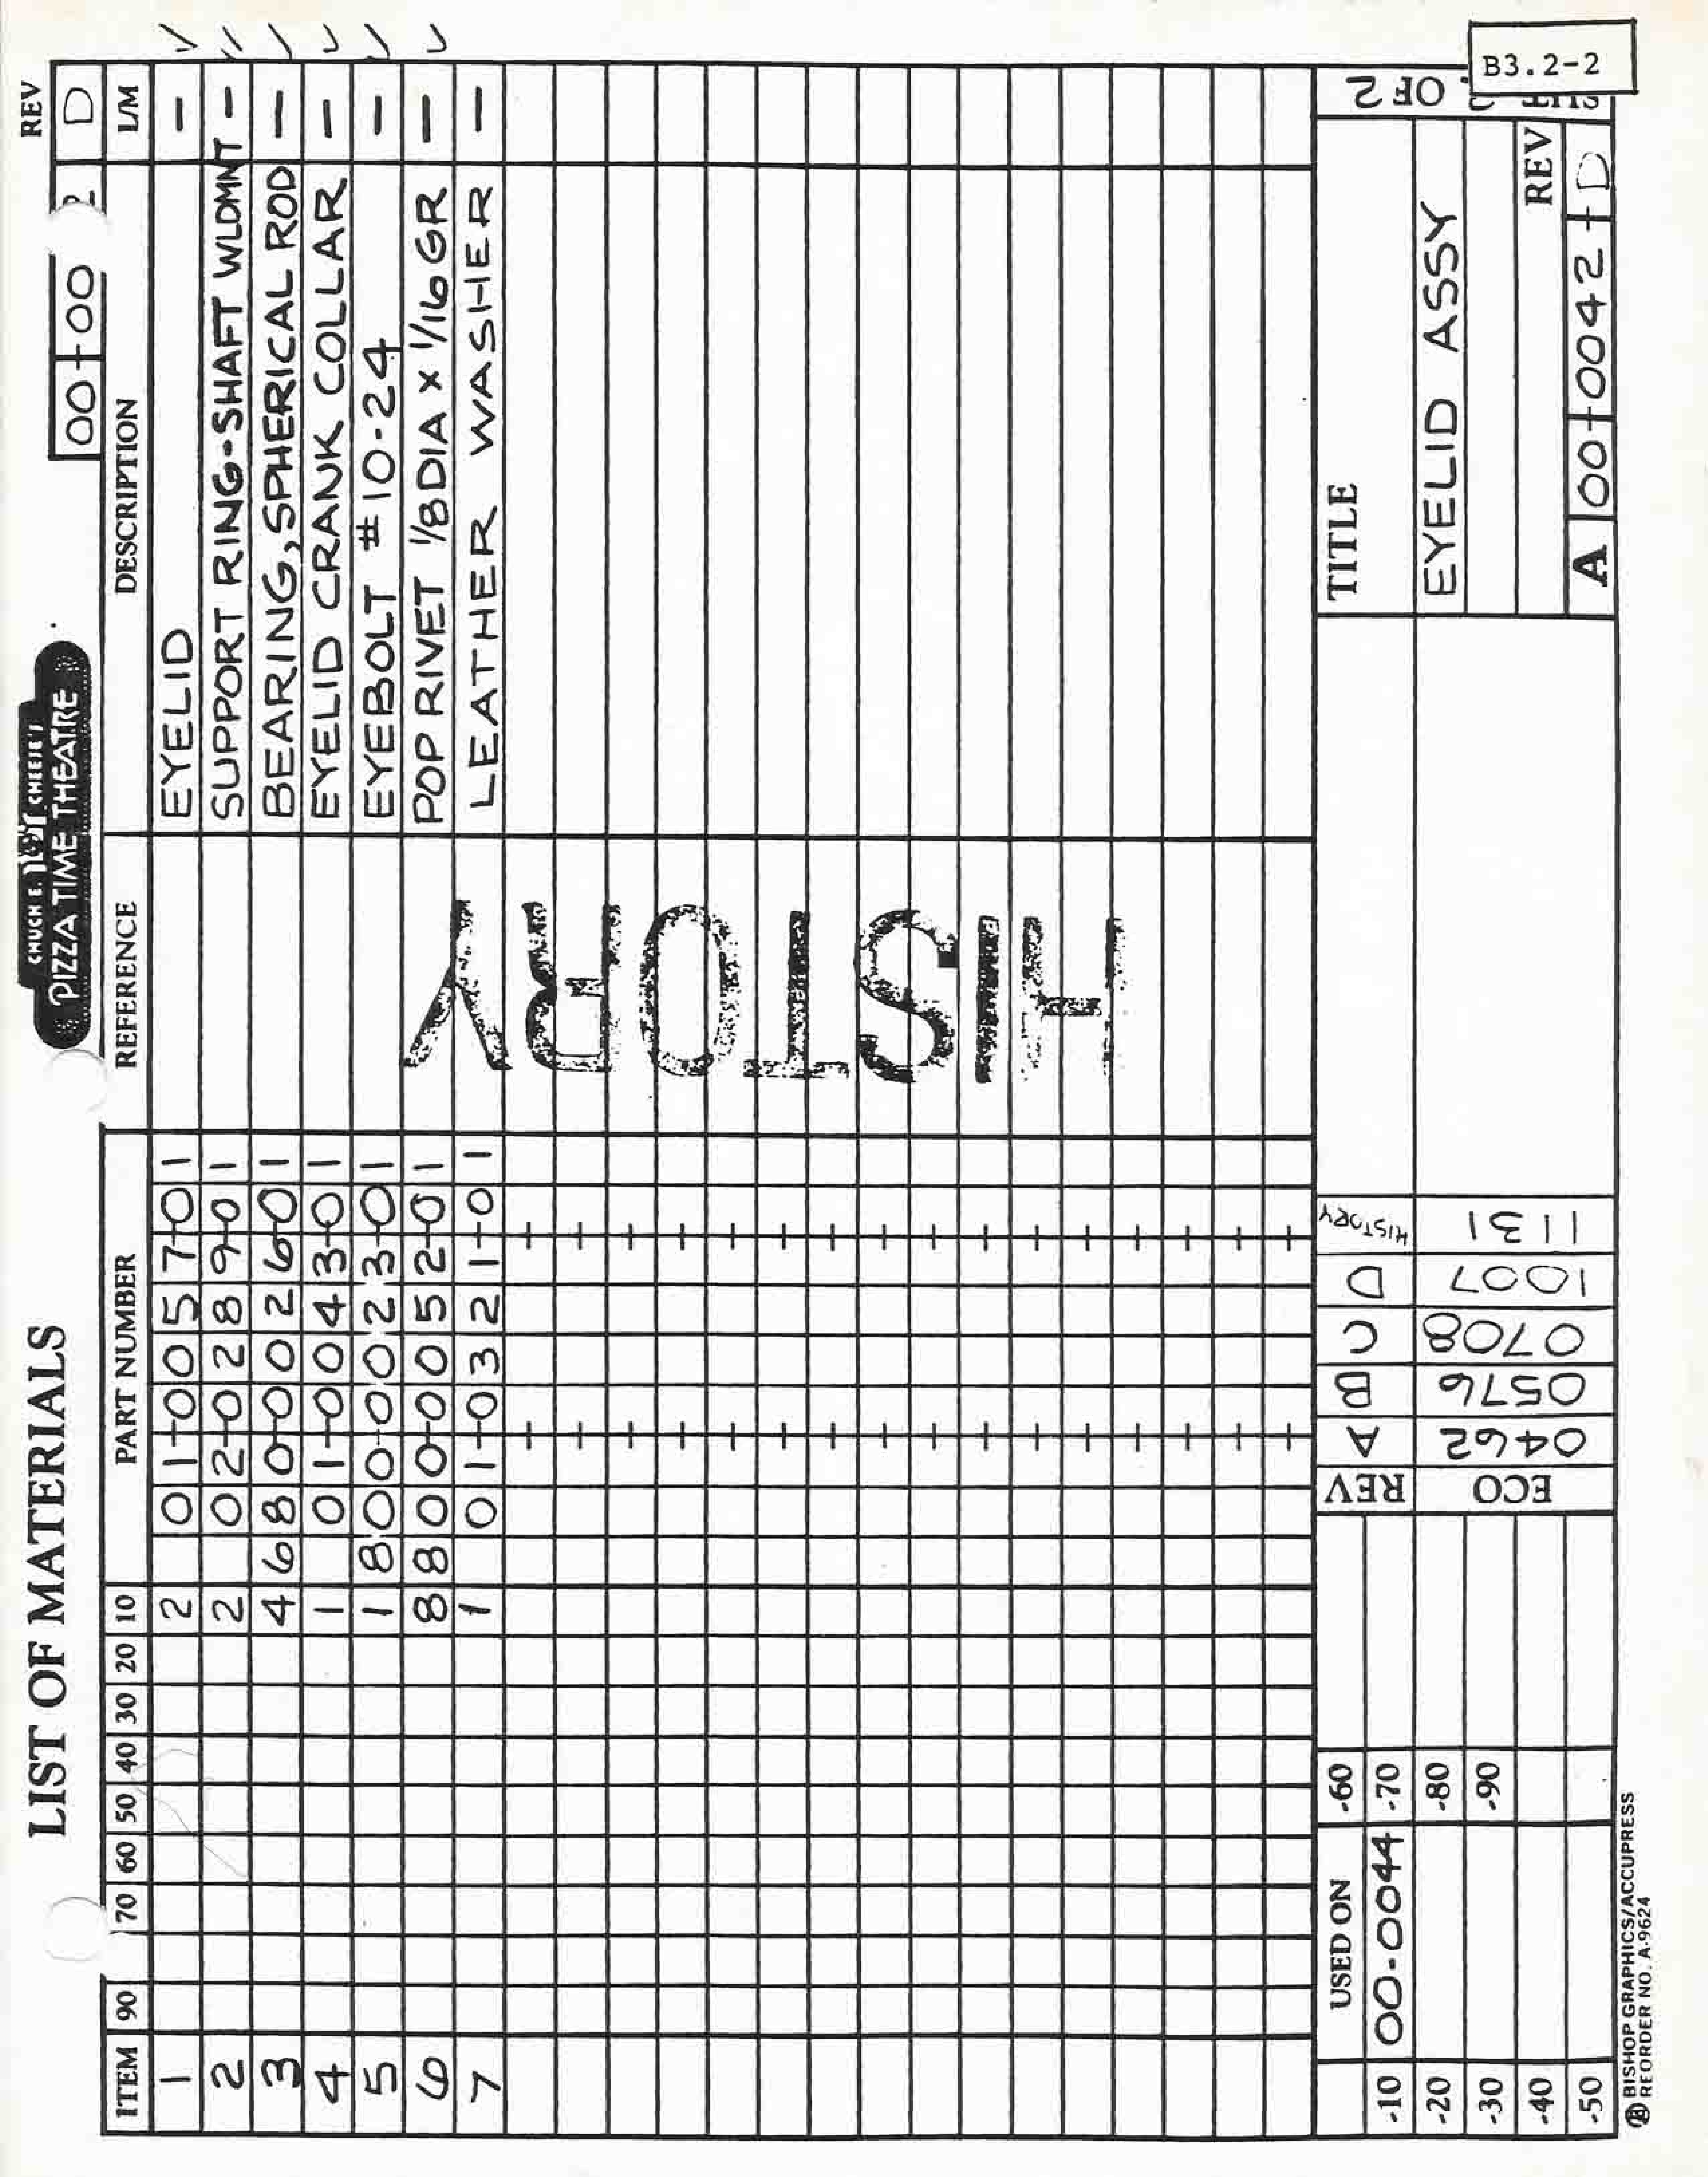 LIST OF MATERIALS
CHUCK E. CHEESE'S
PIZZA TIME THEATRE
REV
00-00 2 D
ITEM 90 70 60 50 40 30 20 10 PART NUMBER REFERENCE DESCRIPTION L/M
1 2 01-0057-01 EYELID —
2 2 02-0289-01 SUPPORT RING-SHAFT WLDMNT —
3 4 680-0026-01 BEARING, SPHERICAL ROD —
4 1 01-0043-01 EYELID CRANK COLLAR —
5 1 800-0023-01 EYEBOLT #10-24 —
6 8 800-0052-01 POP RIVET 1/8 DIA x 1/16 GR —
7 1 01-0321-01 LEATHER WASHER —
HISTORY
USED ON
-10 00-0044 -60
-20 -70
-30 -80
-40 -90
-50
REV A B C D HISTORY
ECO 0462 0576 0708 1007 1131
TITLE
EYELID ASSY
OF 2
REV
A 00-0042-D
B3.2-2
BISHOP GRAPHICS/ACCUPRESS
REORDER NO. A-9624